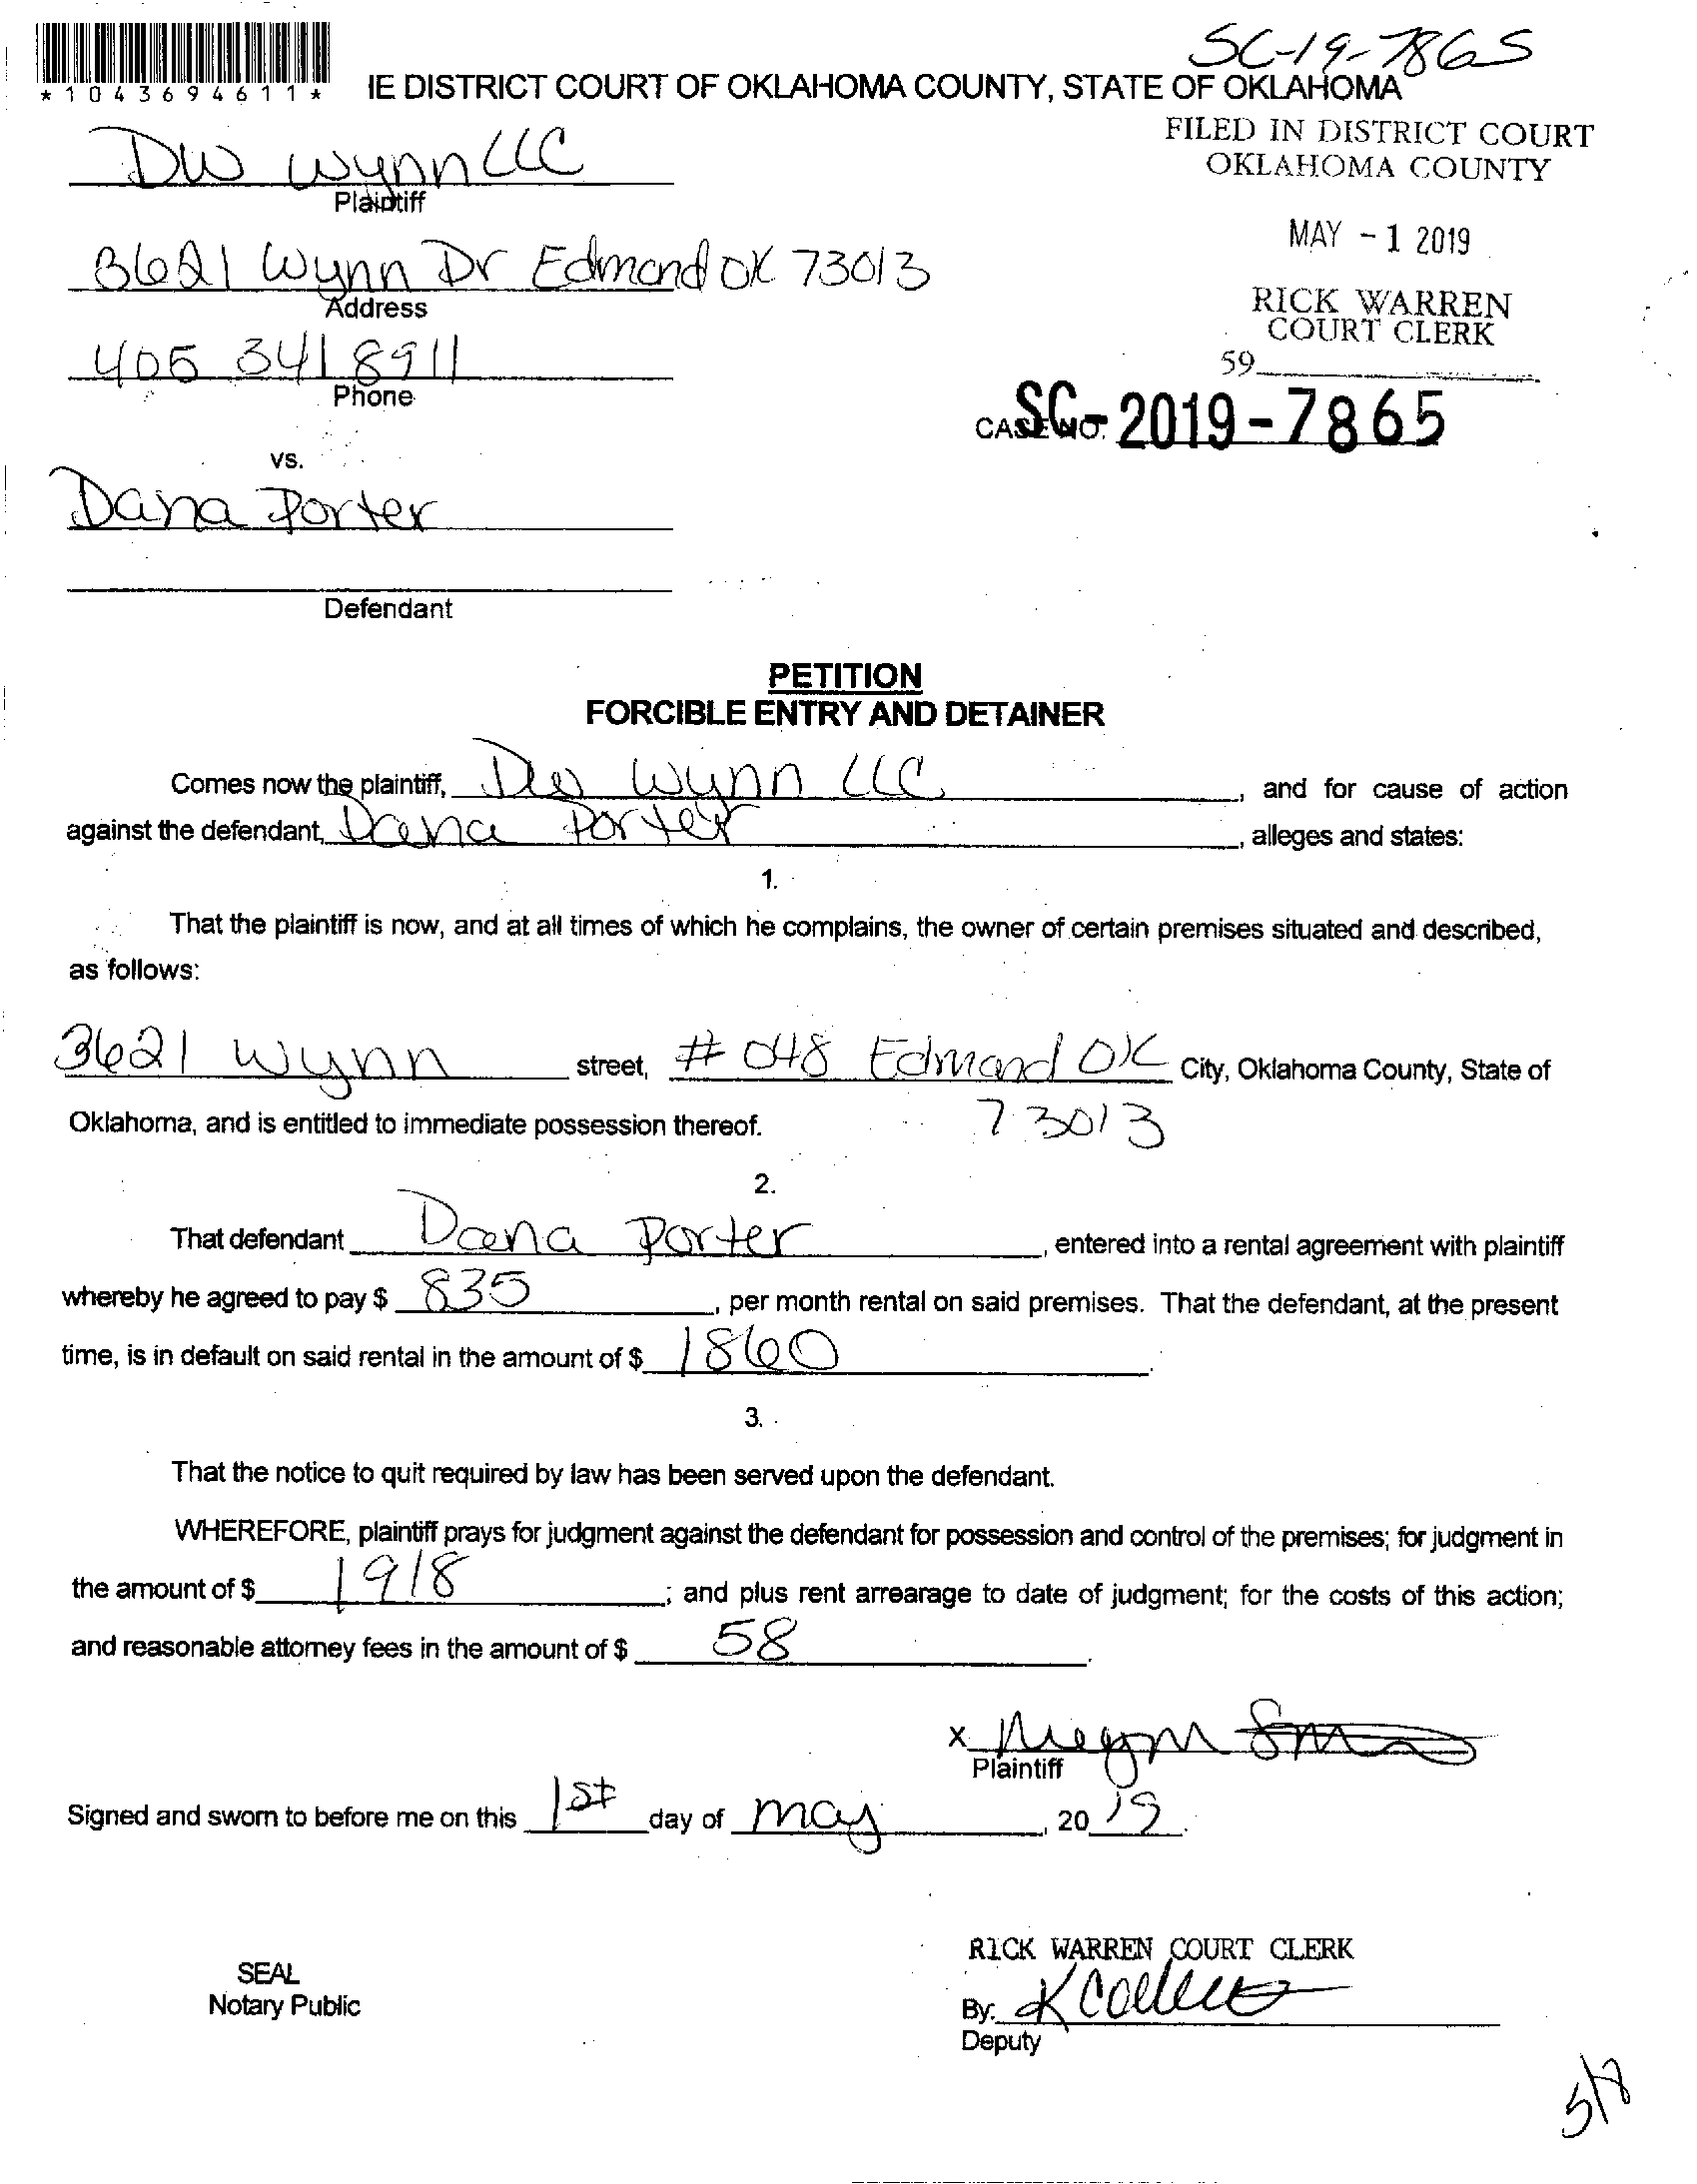 SC-19-7865
*1043694611*
IE DISTRICT COURT OF OKLAHOMA COUNTY, STATE OF OKLAHOMA
FILED IN DISTRICT COURT
OKLAHOMA COUNTY
DW Wynn LLC
Plaintiff
MAY - 1 2019
3621 Wynn Dr Edmond OK 73013
Address
RICK WARREN
COURT CLERK
405 341 8911
Phone
59
CASE NO. SC-2019-7865
vs.
Dana Porter
Defendant
PETITION
FORCIBLE ENTRY AND DETAINER
Comes now the plaintiff, DW Wynn LLC, and for cause of action
against the defendant, Dana Porter, alleges and states:
1.
That the plaintiff is now, and at all times of which he complains, the owner of certain premises situated and described,
as follows:
3621 Wynn street, # 048 Edmond OK City, Oklahoma County, State of
Oklahoma, and is entitled to immediate possession thereof. 73013
2.
That defendant Dana Porter, entered into a rental agreement with plaintiff
whereby he agreed to pay $ 835, per month rental on said premises. That the defendant, at the present
time, is in default on said rental in the amount of $ 1860.
3.
That the notice to quit required by law has been served upon the defendant.
WHEREFORE, plaintiff prays for judgment against the defendant for possession and control of the premises; for judgment in
the amount of $ 1918; and plus rent arrearage to date of judgment; for the costs of this action;
and reasonable attorney fees in the amount of $ 58.
X
Plaintiff
Signed and sworn to before me on this 1st day of May, 2019.
RICK WARREN COURT CLERK
SEAL
Notary Public
By:
Deputy